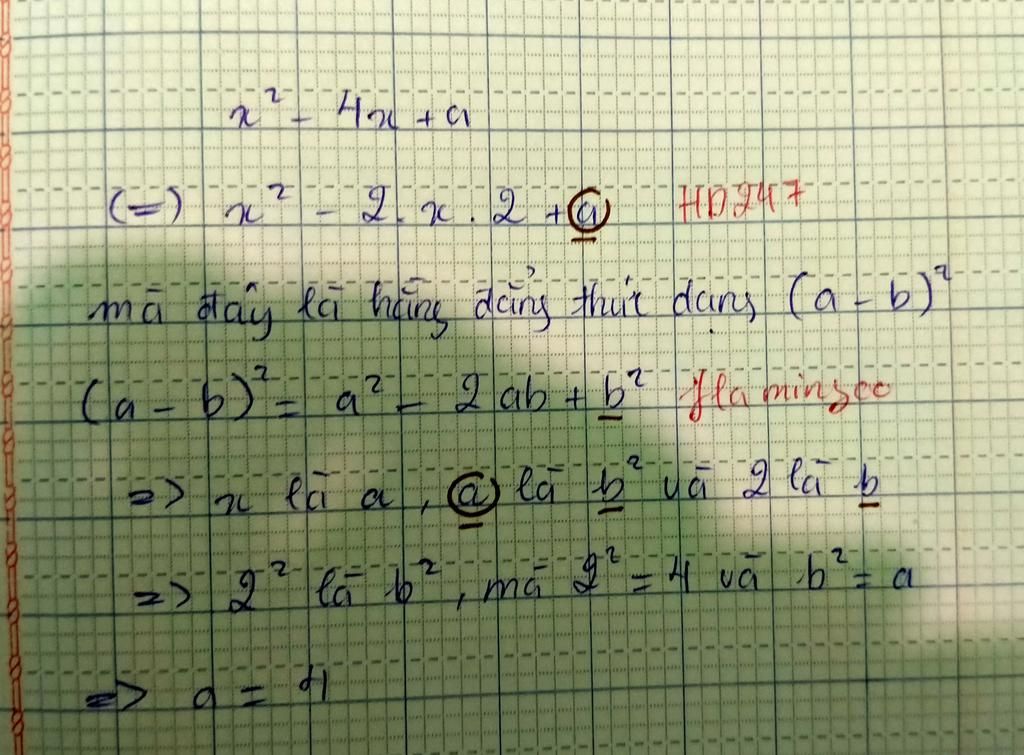 x² - 4x + a
(=) x² - 2.x.2 + a HD247
mà đây là hằng đẳng thức dạng (a - b)²
(a - b)² = a² - 2ab + b² flamingoo
=> x là a, a là b² và 2 là b
=> 2² là b², mà 2² = 4 và b² = a
=> a = 4